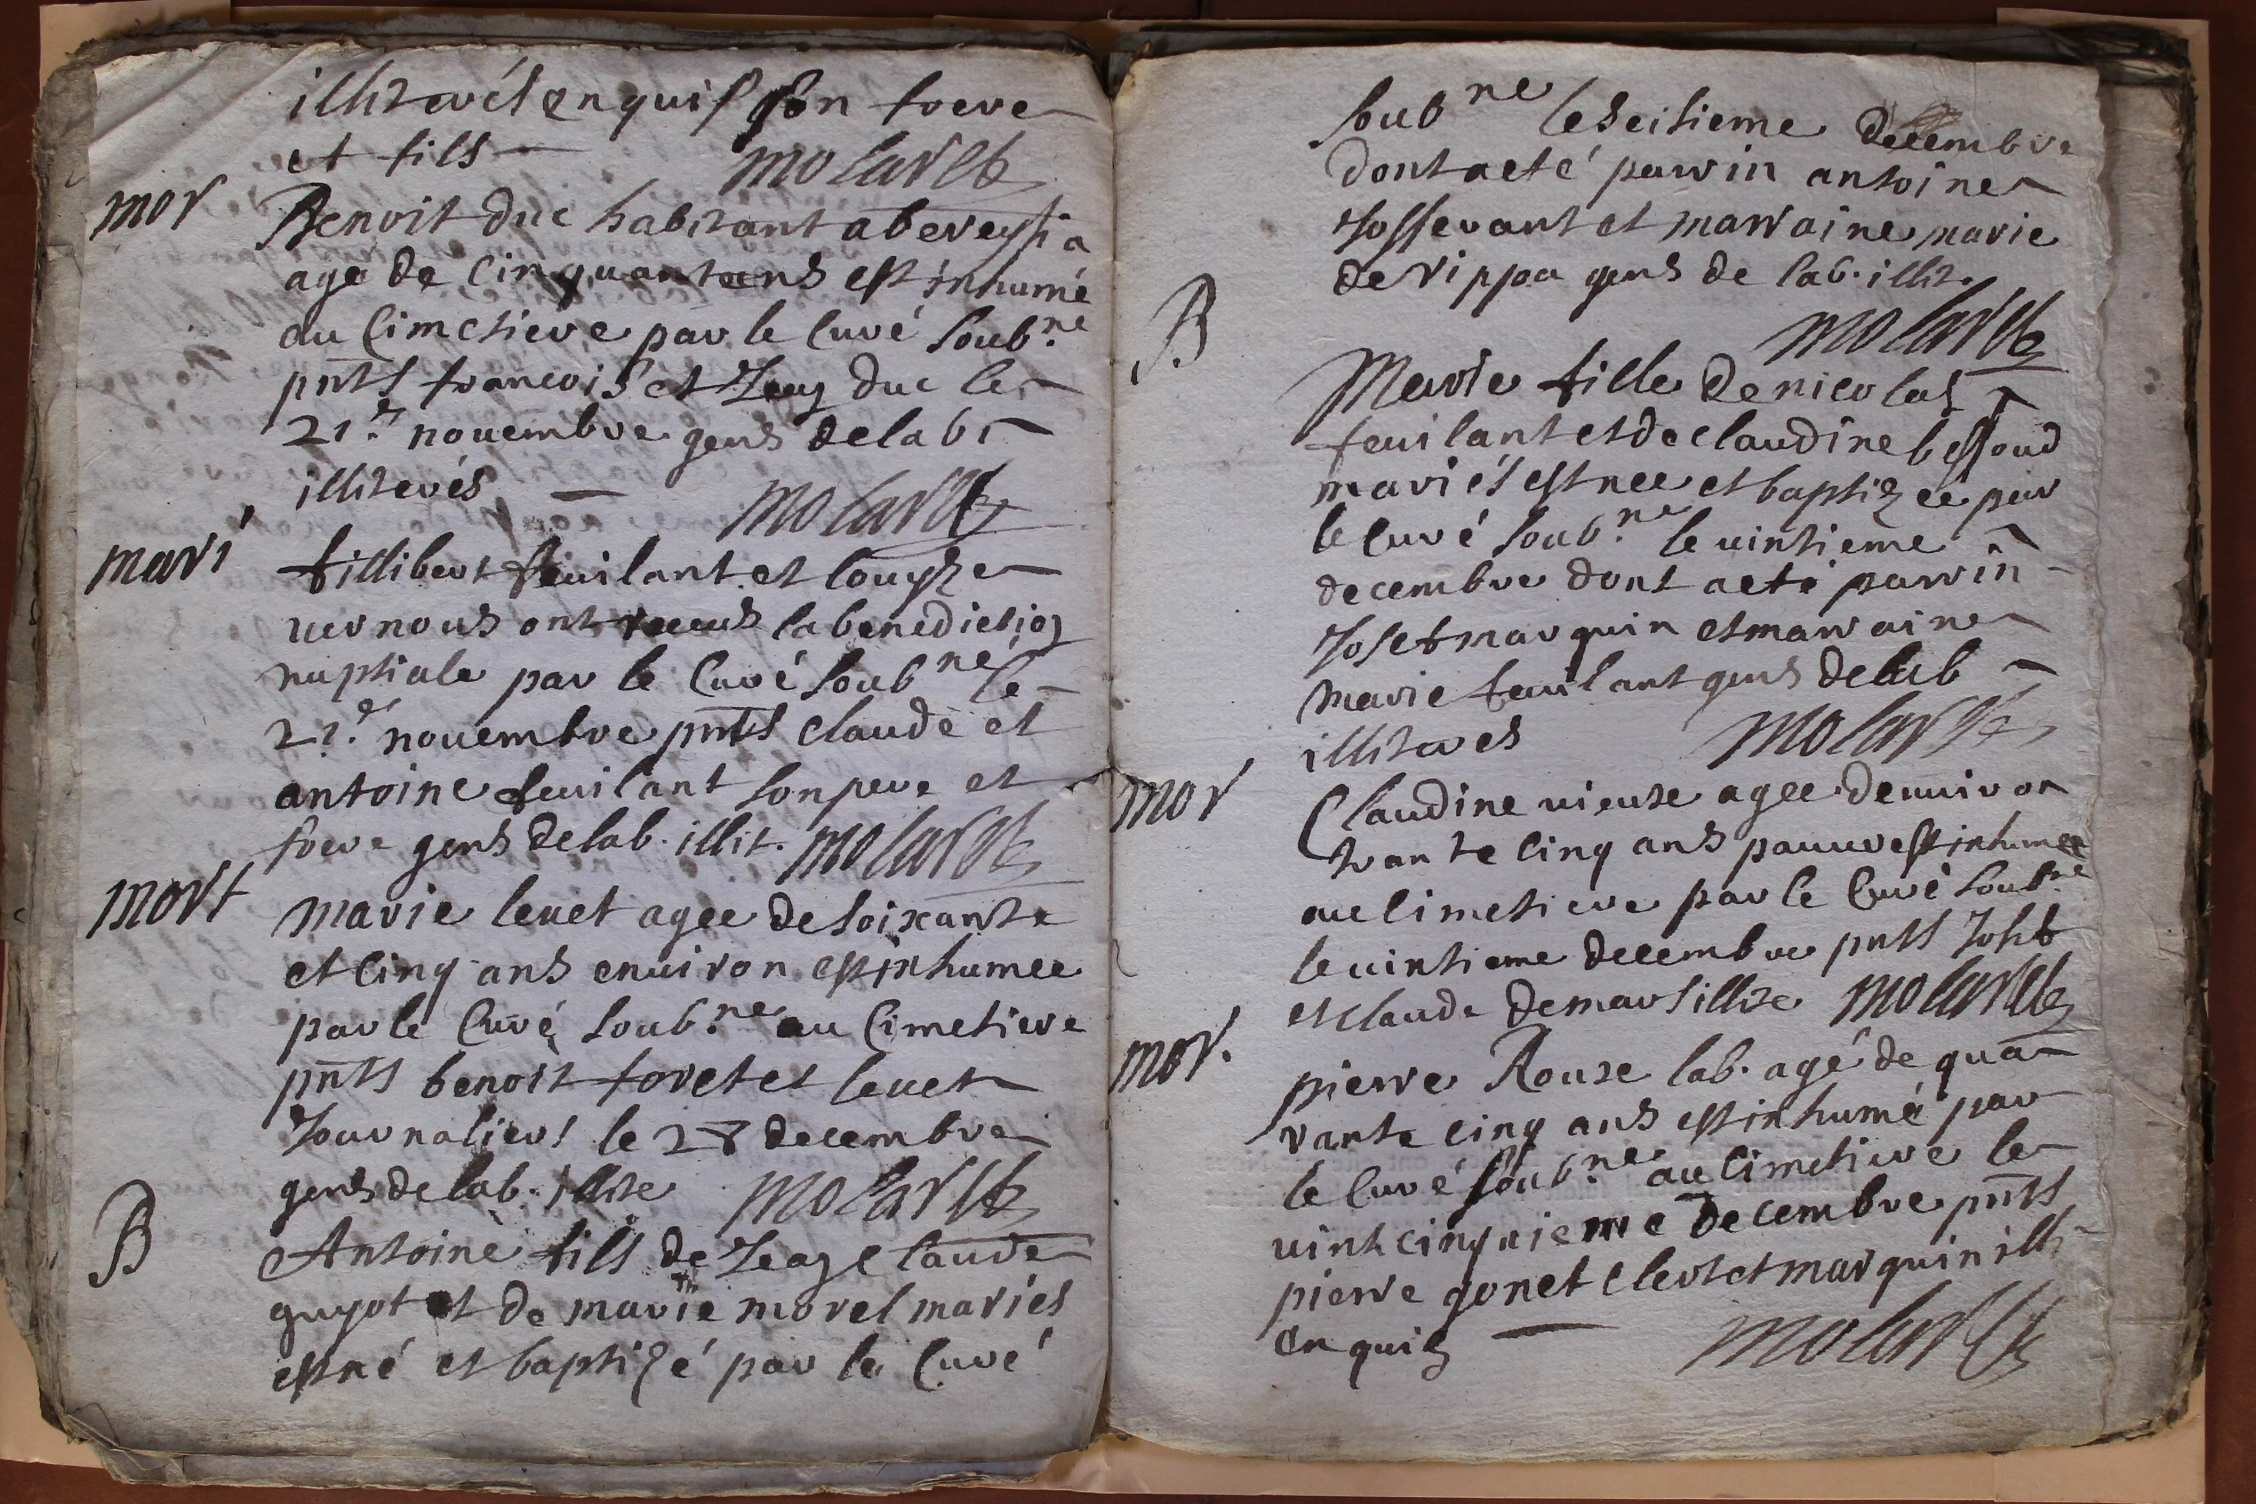 illiterés enquis son frere
et fils molarde
mor
Benoit duc habitant a bereyssia
age de cinquanteans est inhumé
au cimetiere par le curé soub.ne
pnts francois et Jean duc le
21.e nouembre gens de lab
illiterés molarde
mari
fillibert feuilant et louyse
uernous ont receus la benediction
nuptiale par le curé soub.ne le
21.e nouembre pnts claude et
antoine feuilant son pere et
frere gens de lab. illit. molarde
mort
marie leuet agee de soixante
et cinq ans enuiron est inhumee
par le curé soub.ne au cimetiere
pnts benoit foret et leuet
Journaliers le 28 decembre
gens de lab. illite molarde
B
Antoine fils de Jean claude
guyot et de marie morel mariés
est né et baptizé par le curé
soub.ne le seisieme decembre
dont acte parrin antoine
Josserant et marraine marie
de rippa gens de lab. illit.
molarde
B
Marie fille de nicolas
feuilant et de claudine bessoud
mariés est nee et baptizée par
le curé soub.ne le uintieme
decembre dont acte parrin
Josef marquin et marraine
marie feuilant gens de lab
illiteres molarde
mor
Claudine uieuse agee denuiron
trante cinq ans pauure est inhumee
au cimetiere par le curé soub.ne
le uintieme decembre pnts Josef
et claude demars illite molarde
mor.
pierre Rouse lab. agé de qua
rante cinq ans est inhumé par
le curé soub.ne au cimetiere le
uint cinquieme decembre pnts
pierre gonet clert et marquin ill
enquis molarde